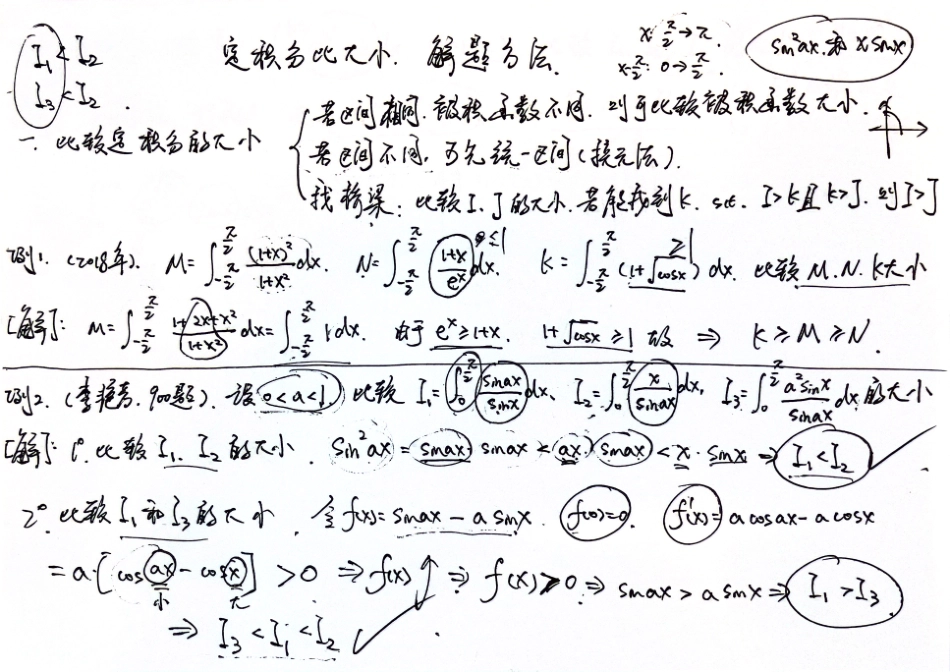 I₁<I₂
I₃<I₂.
定积分比大小. 解题方法.
x: π/2→π.
x-π/2: 0→π/2.
sin²ax. 和 x sinx
一. 比较定积分的大小
若区间相同. 被积函数不同. 则可比较被积函数大小.
若区间不同, 可先统一区间(换元法).
找桥梁: 比较I、J的大小. 若能找到k. s.t. I>k且k>J. 则I>J
例1. (2018年). M=∫_{-π/2}^{π/2} (1+x)²/(1+x²) dx. N=∫_{-π/2}^{π/2} (1+x)/e^x dx. ≤1 K=∫_{-π/2}^{π/2} (1+√cosx) dx. ≥1 比较M.N.K大小
[解]: M=∫_{-π/2}^{π/2} (1+2x+x²)/(1+x²) dx=∫_{-π/2}^{π/2} 1dx. 由于 e^x≥1+x. 1+√cosx≥1 故 ⇒ K≥M≥N.
例2. (李艳芳. 900题). 设0<a<1, 比较 I₁=∫_0^{π/2} sinax/sinx dx、I₂=∫_0^{π/2} x/sinax dx, I₃=∫_0^{π/2} a²sinx/sinax dx 的大小
[解]: 1°. 比较I₁、I₂的大小. sin²ax = sinax·sinax < ax·sinax < x·sinx ⇒ I₁<I₂
2° 比较I₁和I₃的大小. 令f(x)=sinax-a sinx. f(0)=0. f'(x)=a cosax-a cosx
=a·[cosax-cosx]>0 ⇒f(x)↑ ⇒ f(x)>0 ⇒ sinax>a sinx ⇒ I₁>I₃
小 大
⇒ I₃<I₁<I₂